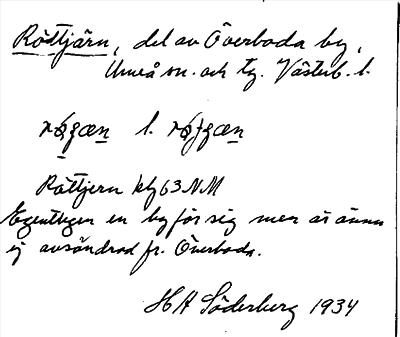 Röttjärn, del av Överboda by,
Umeå sn. och tg. Västerb. l.
l.
Röttjern btg 63 N.M
Egentligen en by för sig men är ännu
ej avsöndrad fr. Överboda.
H A Söderberg 1934